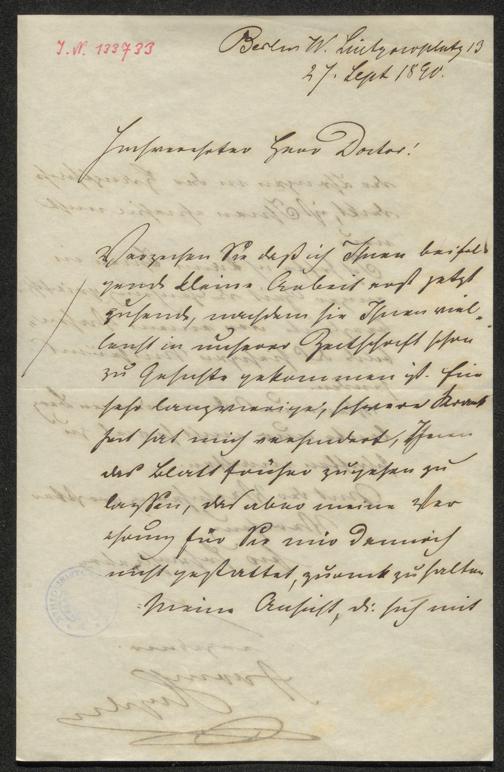 I.N. 133733
Berlin W. Lützowplatz 13
27. Sept 1890.
Hochverehrter Herr Doctor!
Verzeihen Sie daß ich Ihnen beifol-
gende kleine Arbeit erst jetzt
zusende, nachdem sie Ihnen viel-
leicht in unserer Zeitschrift schon
zu Gesichte gekommen ist. Eine
sehr langwierige, schwere Krank
heit hat mich verhindert, Ihnen
das Blatt früher zugehen zu
lassen, das aber meine Ver
ehrung für Sie mir dennoch
nicht gestattet, zurückzuhalten
Meine Ansicht, die sich mit